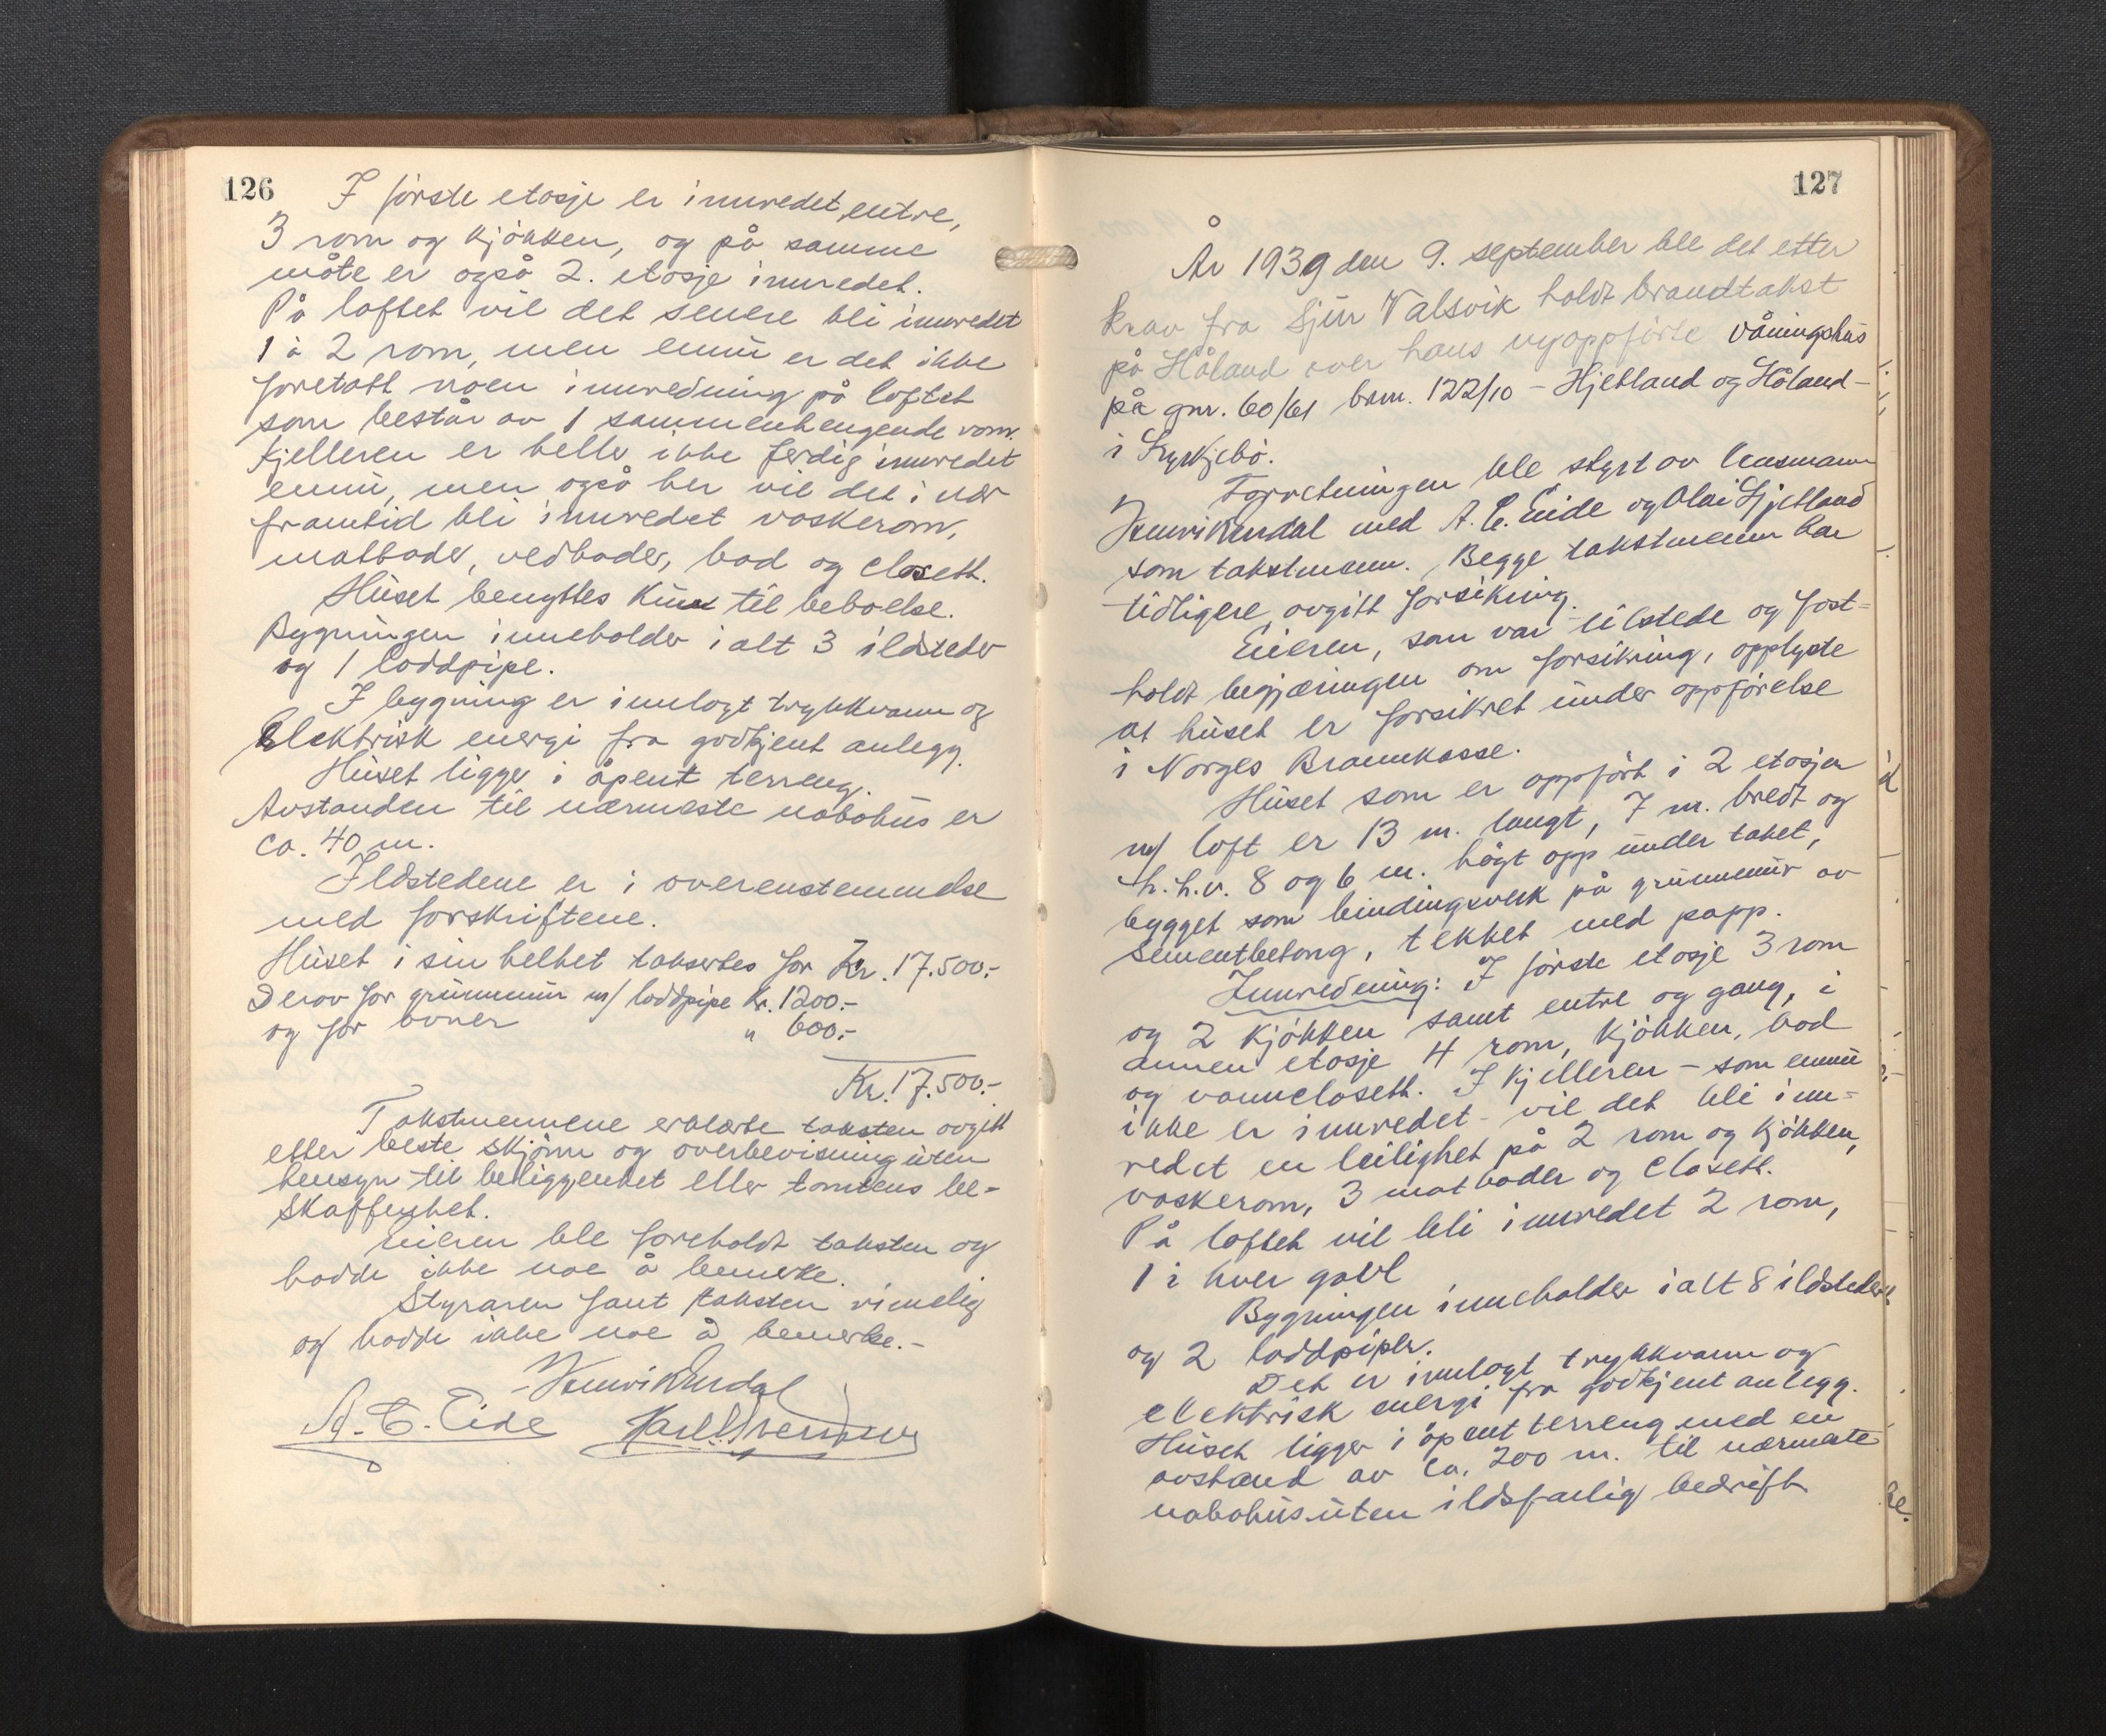 126
I første etasje er innredet entre,
3 rom og kjøkken, og på samme
måte er også 2. etasje innredet.
På loftet vil det senere bli innredet
1 à 2 rom, men ennu er det ikke
foretatt noen innredning på loftet
som består av 1 sammenhengende rom.
Kjelleren er heller ikke ferdig innredet
ennu, men også her vil det i nær
framtid bli innredet vaskerom,
matboder, vedboder, bad og closett.
Huset benyttes kun til beboelse.
Bygningen inneholder i alt 3 ildsteder
og 1 loddpipe.
I bygning er innlagt trykkvann og
Elektrisk energi fra godkjent anlegg.
Huset ligger i åpent terreng.
Avstanden til nærmeste nabohus er
ca. 40 m.
Ildstedene er i overenstemmelse
med forskriftene.
Huset i sin helhet takseres for Kr. 17.500.-
Derav for grunnmur m/ loddpipe Kr. 1200.-
og for ovner " 600.-
Kr. 17.500.-
Takstmennene erklærte taksten avgitt
etter beste skjønn og overbevisning uten
hensyn til beliggenhet eller tomtens be-
skaffenhet.
Eieren ble foreholdt taksten og
hadde ikke noe å bemerke.
Styraren fant taksten rimelig
og hadde ikke noe å bemerke.-
Henrik Endal
A. E. Eide
127
År 1939 den 9. september ble det etter
krav fra Sjur Valsvik holdt brandtakst
på Håland over hans nyoppførte våningshus
på gnr. 60/61 bnr. 122/10 - Hjetland og Håland -
i Lyrkjebø.
Forretningen ble styrt av lensmann
Henrik Endal med A. E. Eide og Olai Hjetland
som takstmenn. Begge takstmenn har
tidligere avgitt forsikring.
Eieren, som var tilstede og fast-
holdt begjæringen om forsikring, opplyste
at huset er forsikret under oppførelse
i Norges Brannkasse.
Huset som er oppført i 2 etasjer
m/ loft er 13 m. langt, 7 m. bredt og
h.h.v. 8 og 6 m. høgt opp under taket,
bygget som bindingsverk på grunnmur av
sementbetong, tekket med papp.
Innredning: I første etasje 3 rom
og 2 kjøkken samt entre og gang, i
annen etasje 4 rom, kjøkken, bad
og vanncloset. I kjelleren - som ennu
ikke er innredet - vil det bli inn-
redet en leilighet på 2 rom og kjøkken,
vaskerom, 3 matboder og closett.
På loftet vil bli innredet 2 rom,
1 i hver gavl
Bygningen inneholder i alt 8 ildsteder
og 2 loddpiper.
Det er innlagt trykkvann og
elektrisk energi fra godkjent anlegg.
Huset ligger i åpent terreng med en
avstand av ca. 200 m. til nærmeste
nabohus uten ildsfarlig bedrift